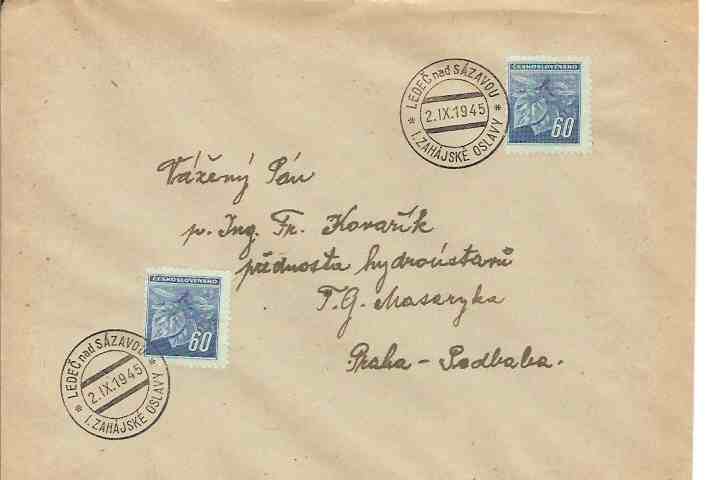 LEDEČ nad SÁZAVOU
2.IX.1945
* I. ZAHÁJSKÉ OSLAVY *
ČESKOSLOVENSKO
60
Vážený Pán
p. Ing. Fr. Kovařík
přednosta hydroústavů
T. G. Masaryka
Praha - Podbaba.
ČESKOSLOVENSKO
60
LEDEČ nad SÁZAVOU
2.IX.1945
* I. ZAHÁJSKÉ OSLAVY *